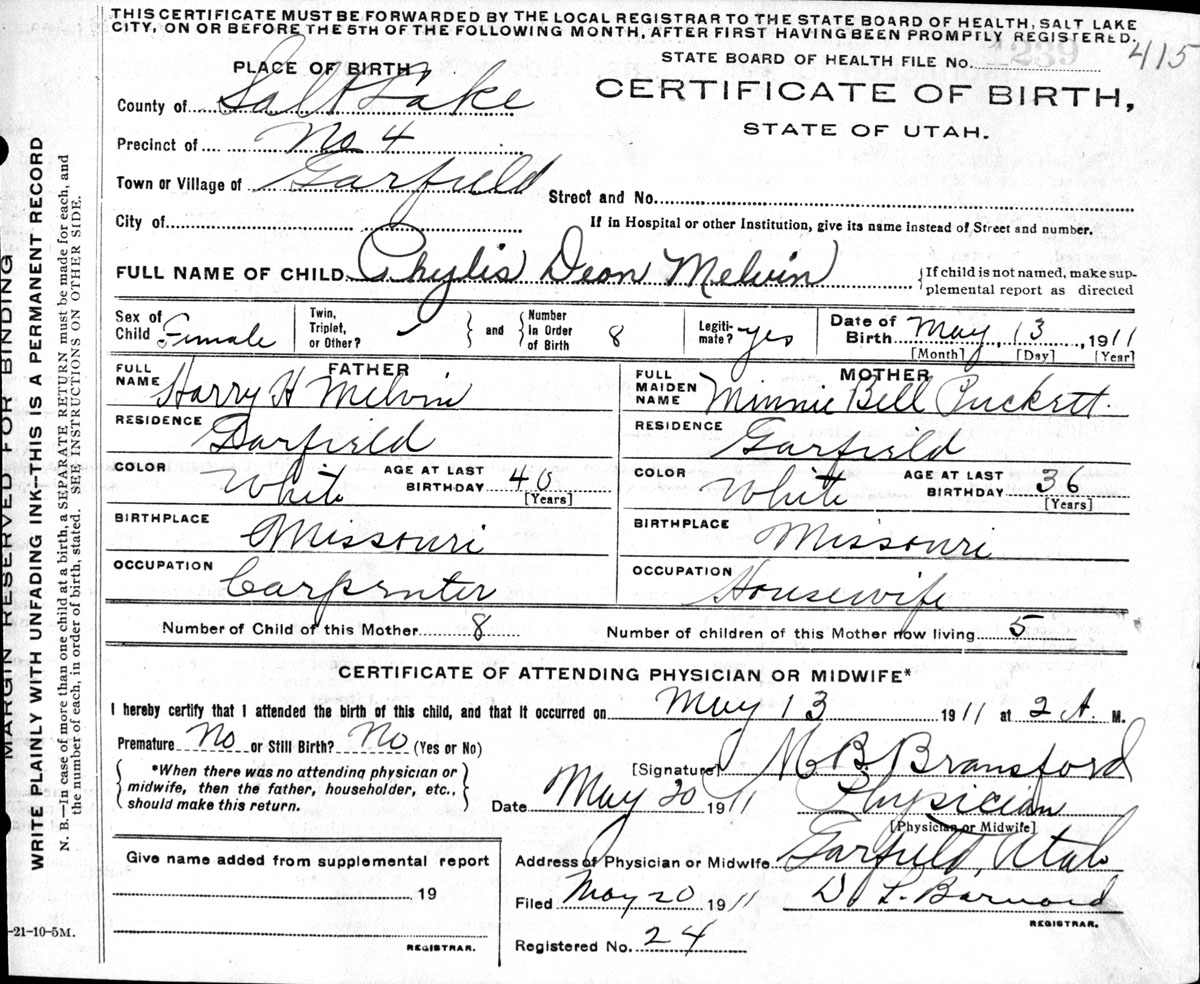 THIS CERTIFICATE MUST BE FORWARDED BY THE LOCAL REGISTRAR TO THE STATE BOARD OF HEALTH, SALT LAKE
CITY, ON OR BEFORE THE 5TH OF THE FOLLOWING MONTH, AFTER FIRST HAVING BEEN PROMPTLY REGISTERED.
STATE BOARD OF HEALTH FILE No. 1239 415
PLACE OF BIRTH
CERTIFICATE OF BIRTH,
STATE OF UTAH.
County of Salt Lake
Precinct of No 4
Town or Village of Garfield
Street and No.
City of
If in Hospital or other Institution, give its name instead of Street and number.
FULL NAME OF CHILD Phylis Deon Melvin
{If child is not named, make sup-
plemental report as directed
Sex of Child Female
Twin, Triplet, or Other? and Number In Order of Birth 8
Legiti-mate? yes
Date of Birth May, 13, 1911
[Month] [Day] [Year]
FATHER
FULL NAME Harry H Melvin
RESIDENCE Garfield
COLOR White AGE AT LAST BIRTHDAY 40
[Years]
BIRTHPLACE Missouri
OCCUPATION Carpenter
MOTHER
FULL MAIDEN NAME Minnie Bell Puckett.
RESIDENCE Garfield
COLOR White AGE AT LAST BIRTHDAY 36
[Years]
BIRTHPLACE Missouri
OCCUPATION Housewife
Number of Child of this Mother 8 Number of children of this Mother now living 5
CERTIFICATE OF ATTENDING PHYSICIAN OR MIDWIFE*
I hereby certify that I attended the birth of this child, and that it occurred on May 13 1911 at 2 A. M.
Premature No or Still Birth? No (Yes or No)
*When there was no attending physician or
midwife, then the father, householder, etc.,
should make this return.
[Signature] M B. Bransford
Date May 20 1911 Physician
[Physician or Midwife]
Address of Physician or Midwife Garfield, Utah
Filed May 20 1911 D L. Barnard
REGISTRAR.
Registered No. 24
Give name added from supplemental report
19
REGISTRAR.
-21-10-5M.
MARGIN RESERVED FOR BINDING
WRITE PLAINLY WITH UNFADING INK--THIS IS A PERMANENT RECORD
N. B.—In case of more than one child at a birth, a SEPARATE RETURN must be made for each, and
the number of each, in order of birth, stated. SEE INSTRUCTIONS ON OTHER SIDE.